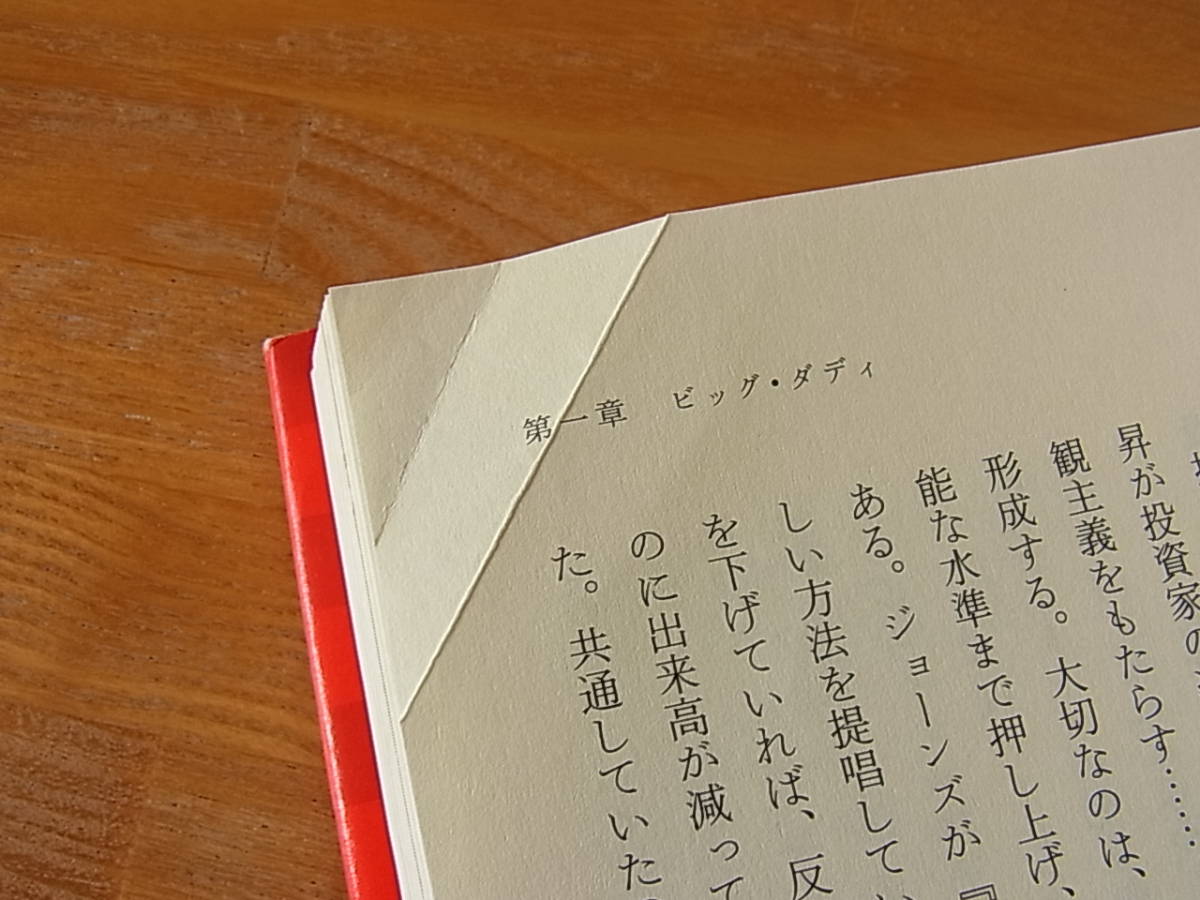 第一章 ビッグ・ダディ
昇が投資家の
観主義をもたらす……
形成する。大切なのは、
能な水準まで押し上げ、
ある。ジョーンズが『
しい方法を提唱してい
を下げていれば、反
のに出来高が減って
た。共通していた